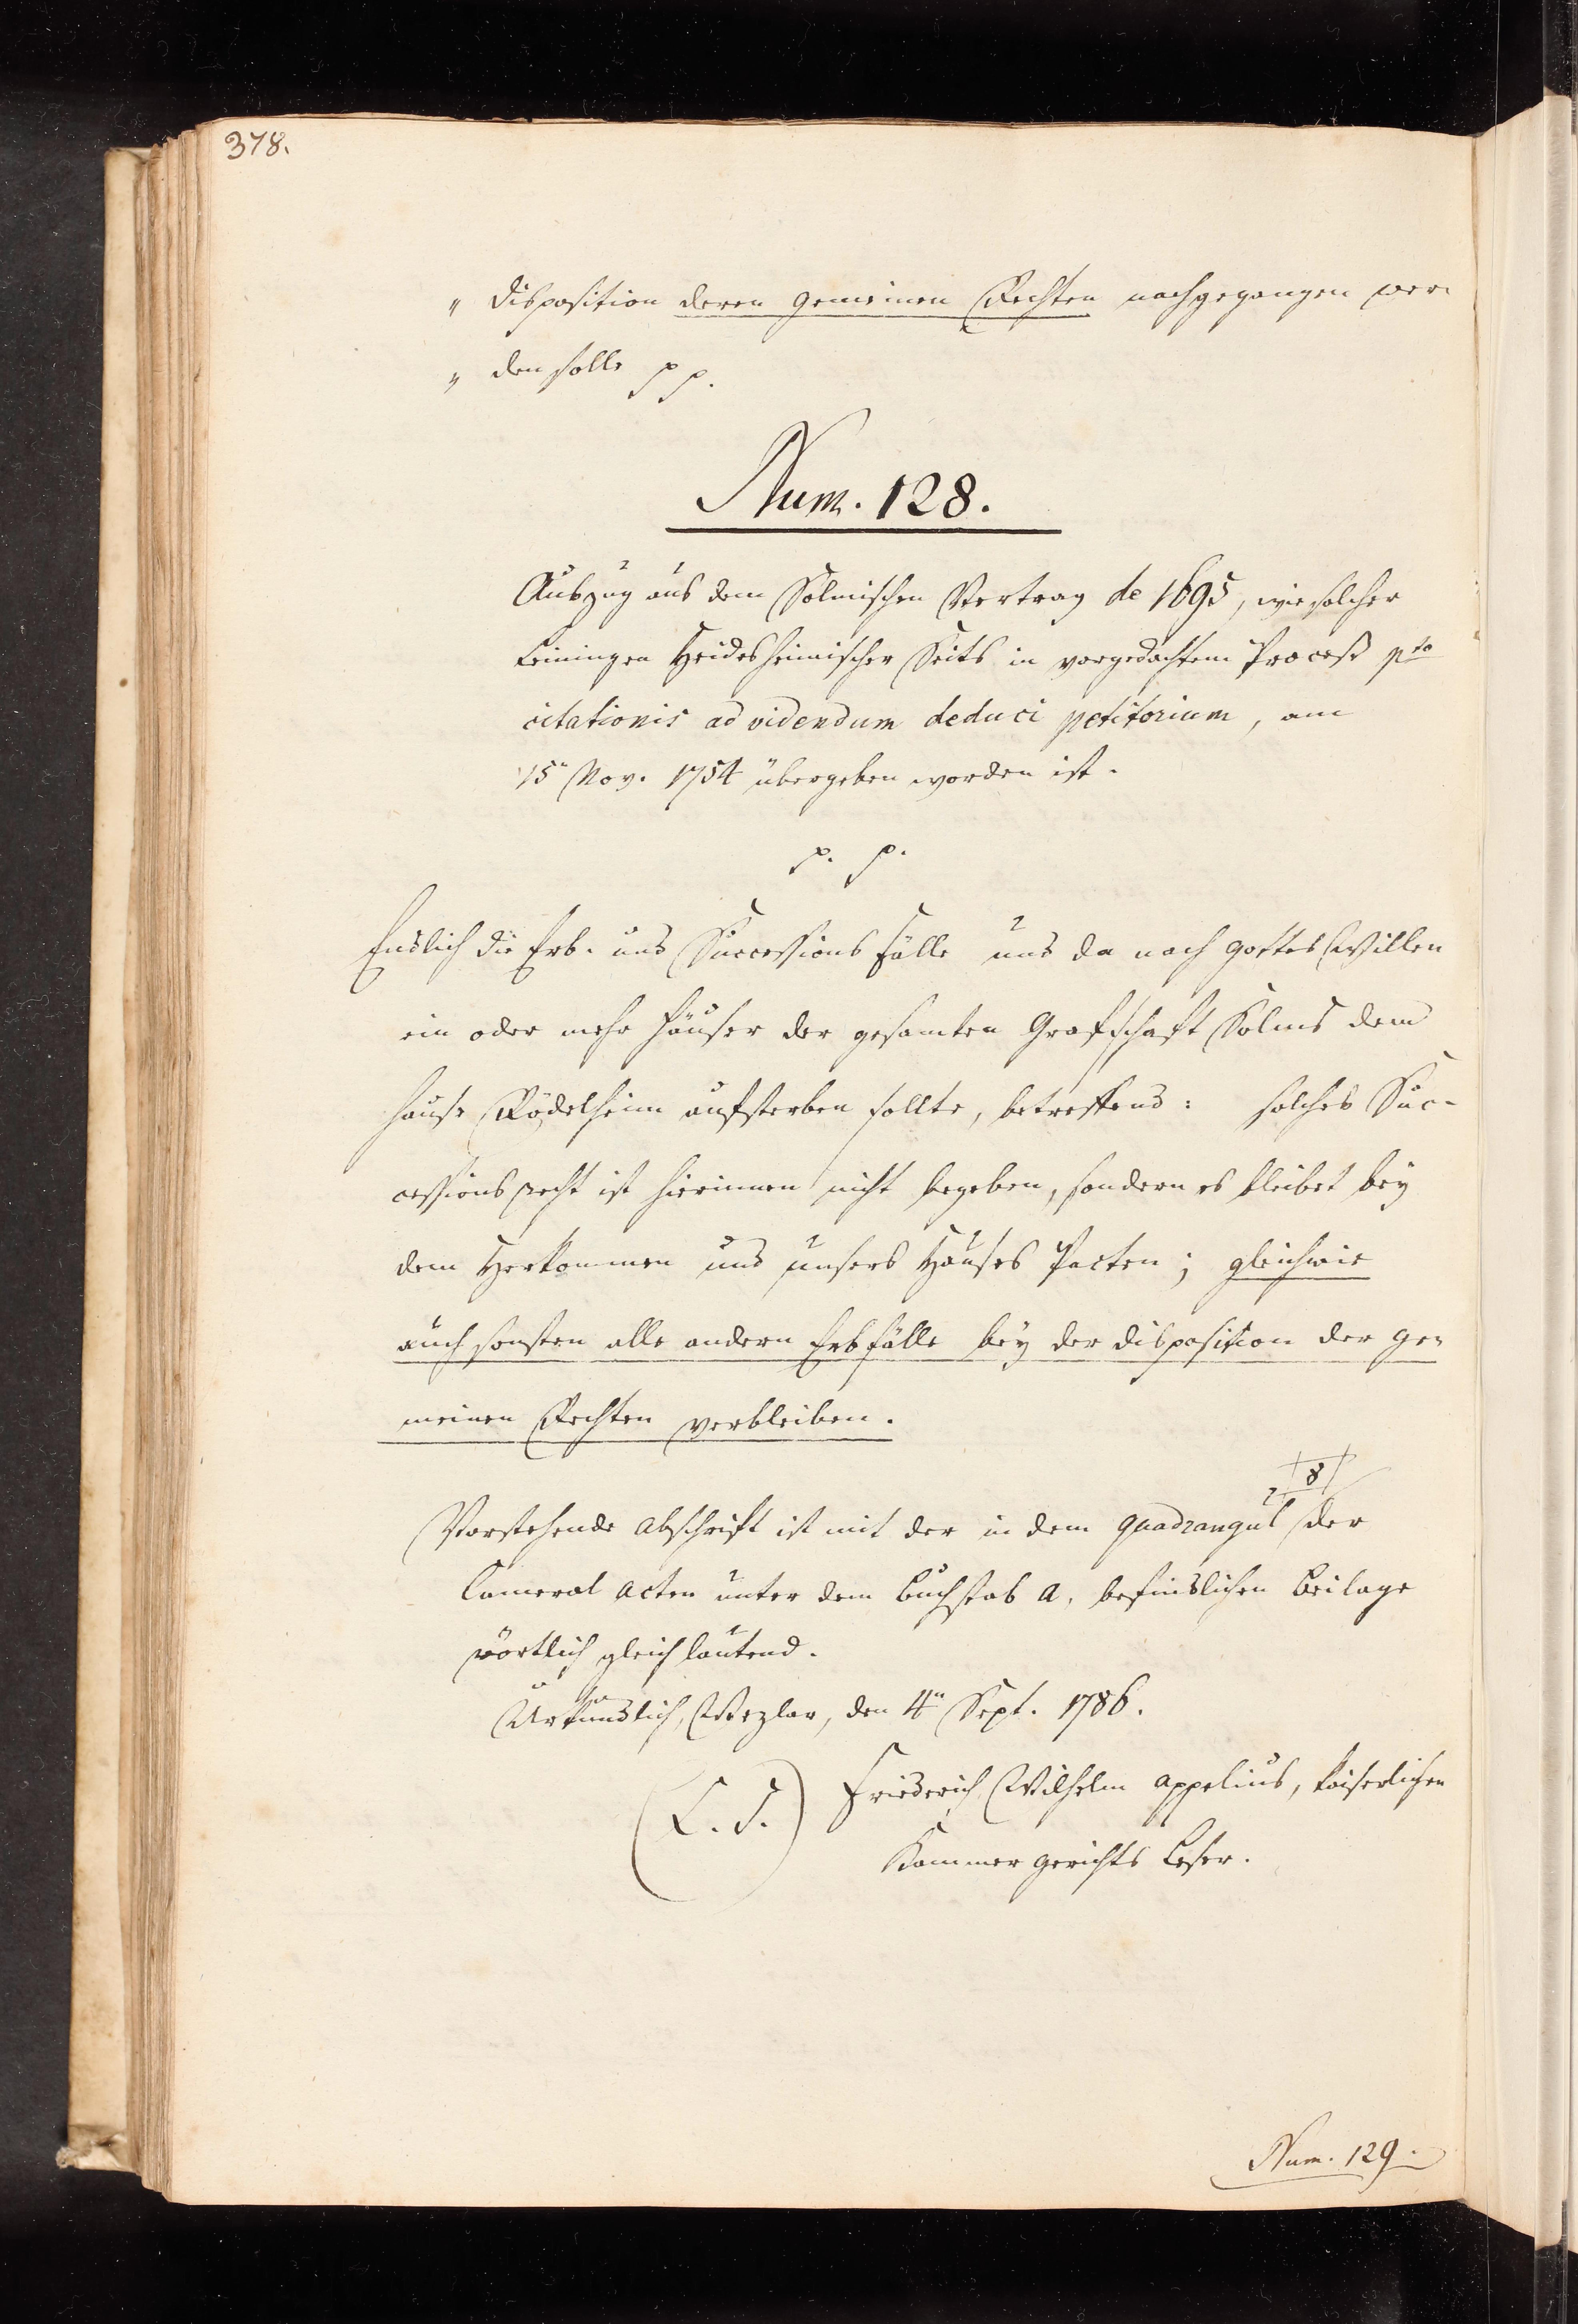 378.
„ disposition deren gemeinen Rechten nachgegangen wer-
„ den solle pp.
Num. 128.
Auszug aus dem Solmischen Vertrag de 1695, wie solcher
Leiningen Heidesheimischer Seits in vorgedachtem Proceß pto
citationis ad videndum deduci petitorium, am
15n Nov. 1754 übergeben worden ist.
p. p.
Endlich die Erb- und Successions Fälle und da nach Gottes Willen
ein oder mehr Häuser der gesamten Grafschaft Solms dem
Hause Rödelheim aufsterben sollte, betreffend: solches Suc-
cessions recht ist hierinnen nicht begeben, sondern es bleibet bey
dem Herkommen und unsers Hauses Pacten; gleichwie
auch sonsten alle andern Erbfälle bey der disposition der ge-
meinen Rechten verbleiben.
Vorstehende Abschrift ist mit der in dem quadrangul 8 der
Cameral Acten unter dem Buchstab A, befindlichen Beilage
wörtlich gleich lautend.
Urkundlich, Wezlar, den 4n Sept. 1786.
(L. S.) Friederich Wilhelm Appelius, Kaiserlichen
Kammer gerichts Leser.
Num. 129.